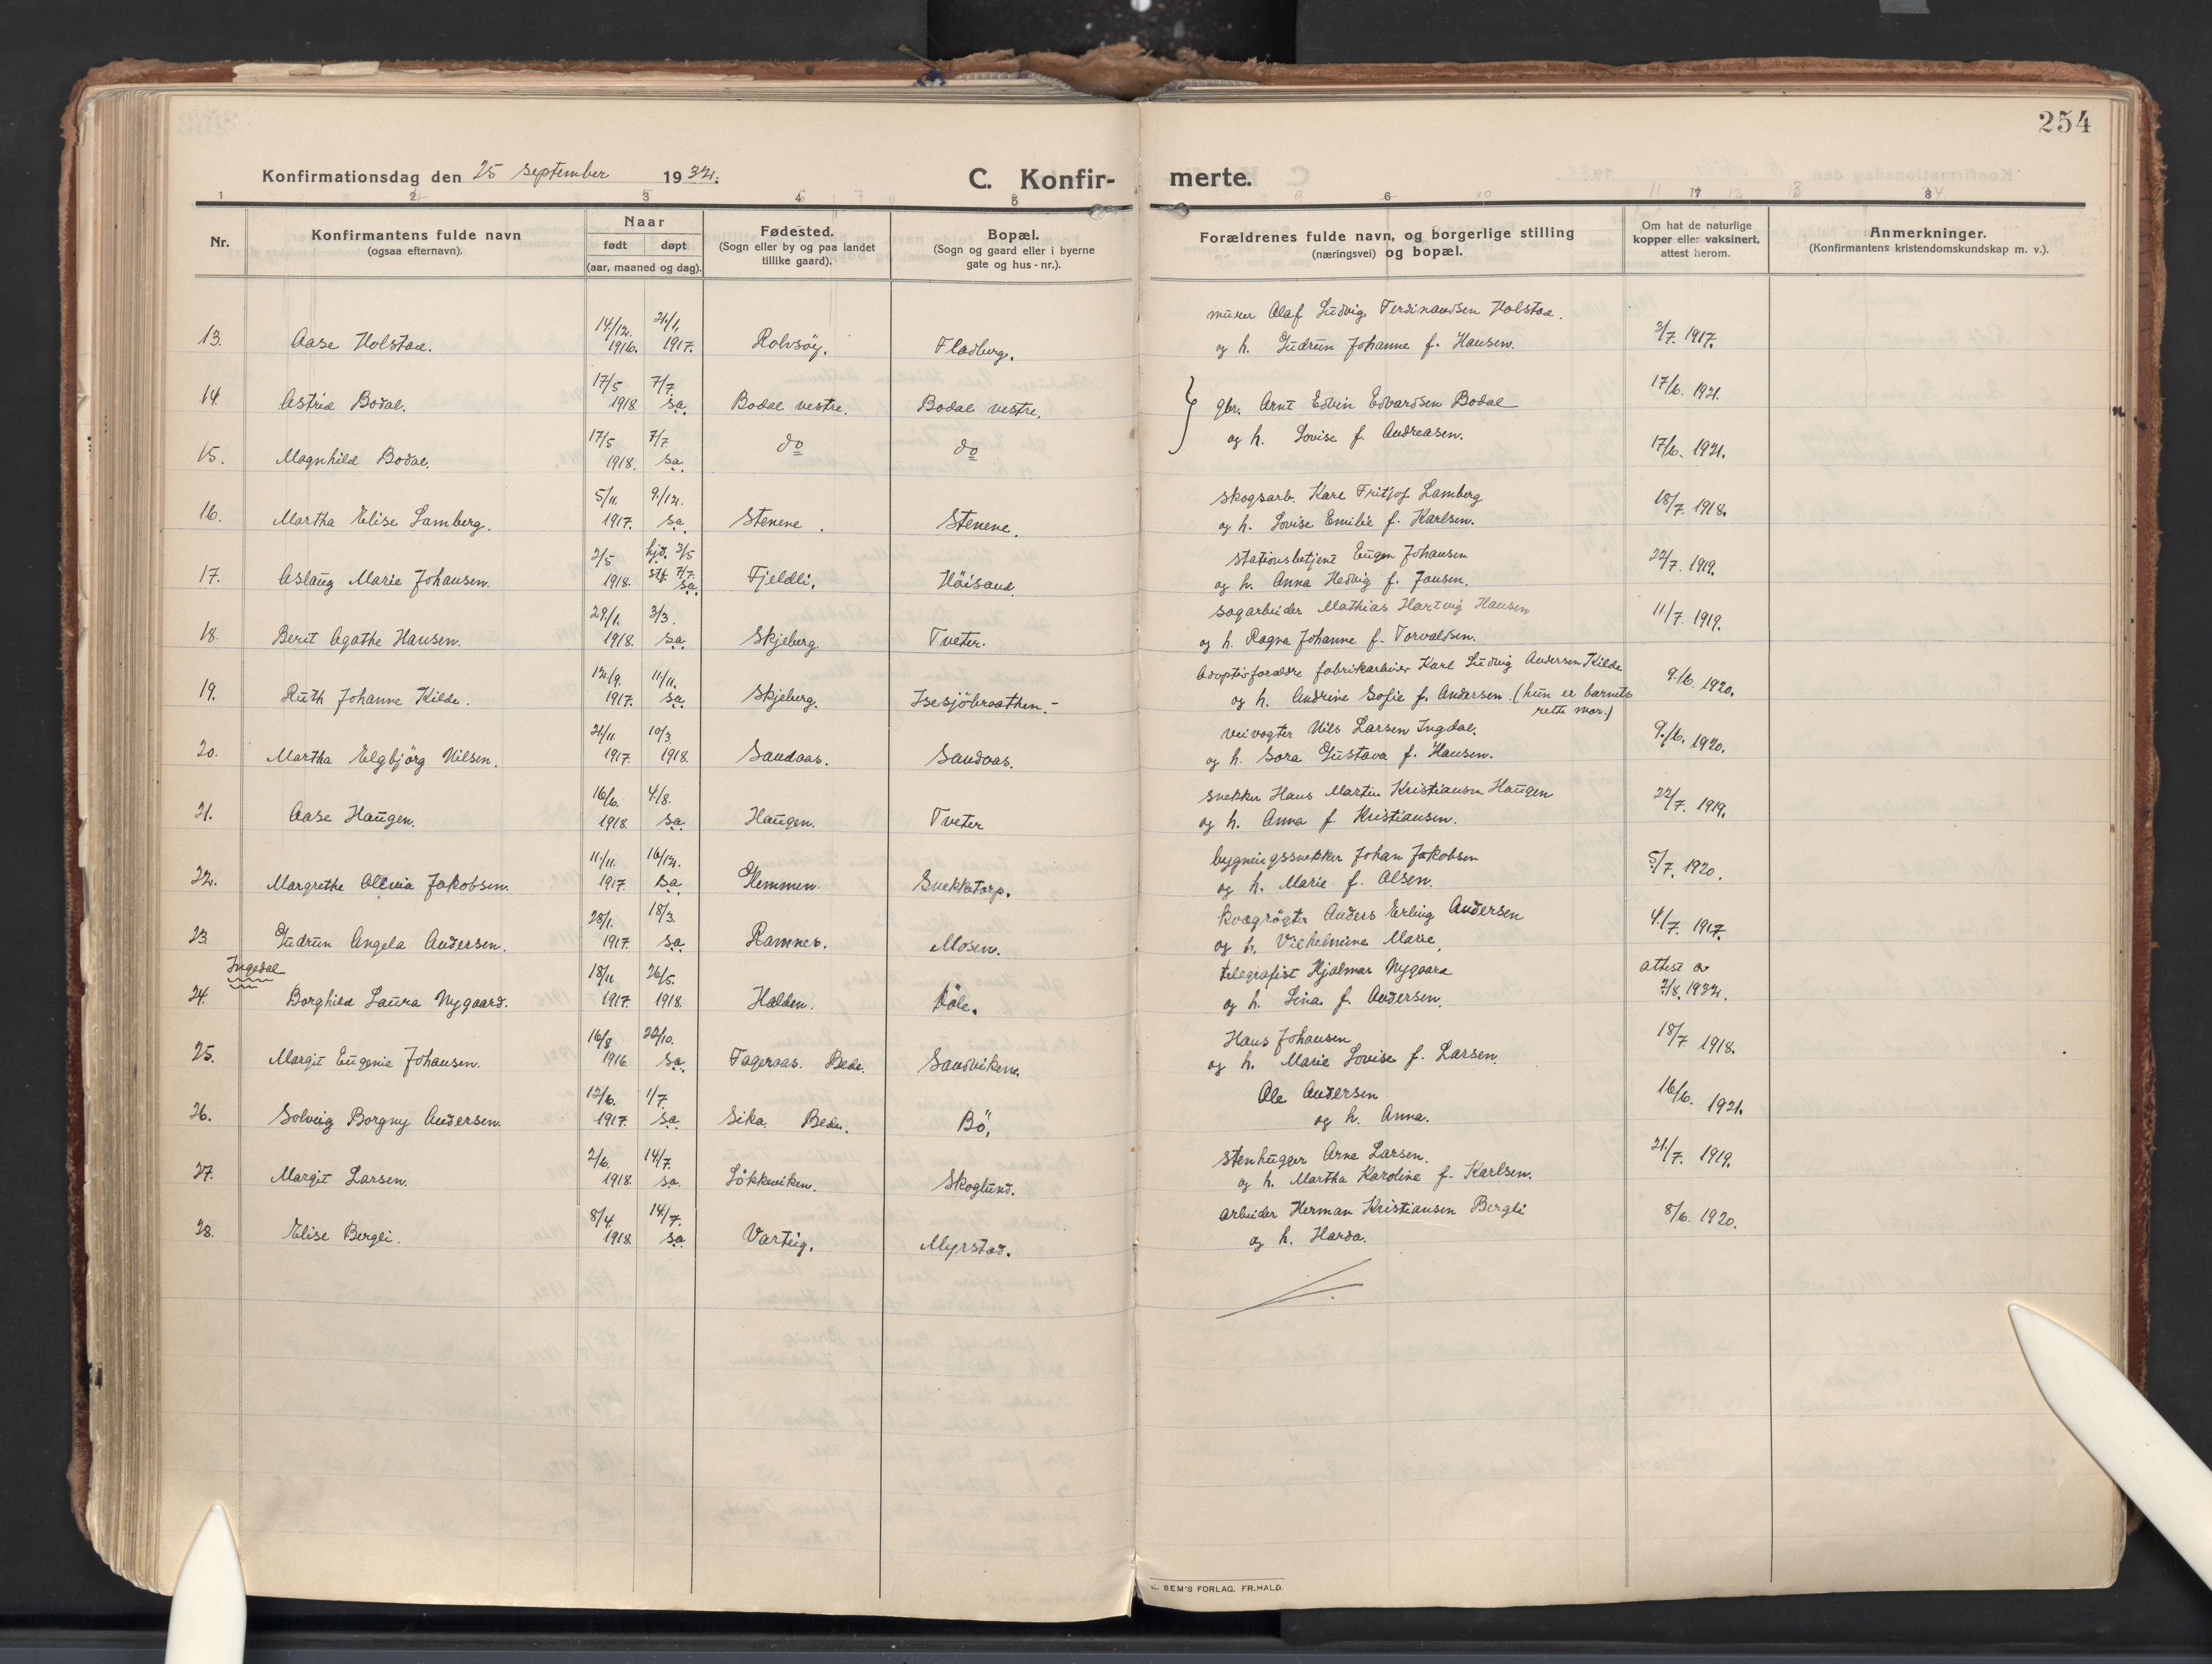 254
Konfirmationsdag den 25 september 1932.
C. Konfir- merte.
1 2 3 4 5 6 7 8
Nr.
Konfirmantens fulde navn
(ogsaa efternavn).
Naar
født døpt
(aar, maaned og dag).
Fødested.
(Sogn eller by og paa landet
tillike gaard).
Bopæl.
(Sogn og gaard eller i byerne
gate og hus - nr.).
Forældrenes fulde navn, og borgerlige stilling
(næringsvei) og bopæl.
Om hat de naturlige
kopper eller vaksinert,
attest herom.
Anmerkninger.
(Konfirmantens kristendomskundskap m. v.).
murer Olaf Ludvig Ferdinandsen Holstad.
13. Aase Holstad. 14/12. 1916. 21/1. 1917. Rolvsöy. Fladberg. og h. Gudrun Johanne f. Hansen. 3/7. 1917.
14. Astrid Bodal. 17/5 1918. 7/7. sa. Bodal vestre. Bodal vestre. gbr. Arnt Edvin Edvardsen Bodal 17/6. 1921.
og h. Lovise f. Andreasen.
15. Magnhild Bodal. 17/5 1918. 7/7. sa. do do 17/6. 1921.
skogsarb. Karl Fritjof Lamberg
16. Martha Elise Lamberg. 5/11. 1917. 9/12. sa. Stenene. Stenene. og h. Lovise Emilie f. Karlsen. 18/7. 1918.
stationsbetjent Eugen Johansen
17. Aslaug Marie Johansen. 2/5 1918. hjd. 3/5 stf. 7/7. sa. Fjeldli. Höisand. og h. Anna Hedvig f. Jansen. 22/7. 1919.
sagarbeider Mathias Hartvig Hansen
18. Berit Agathe Hansen. 29/1. 1918. 3/3. sa. Skjeberg. Tveter. og h. Ragna Johanne f. Torvaldsen. 11/7. 1919.
Adoptivforældre fabrikarbeider Karl Ludvig Andersen Kilde
19. Ruth Johanne Kilde. 12/9. 1917. 11/11. sa. Skjeberg. Isesjöbraathen. og h. Andrine Sofie f. Andersen (hun er barnets
rette mor.) 9/6. 1920.
veivogter Nils Larsen Ingdal.
20. Martha Elgbjörg Nilsen. 21/11. 1917. 10/3. 1918. Sandaas. Sandaas. og h. Sora Gustava f. Hansen. 9/6. 1920.
snekker Hans Martin Kristiansen Haugen
21. Aase Haugen. 16/6. 1918. 4/8. sa. Haugen. Tveter og h. Anna f. Kristiansen. 22/7. 1919.
bygningssnekker Johan Jakobsen
22. Margrethe Olivia Jakobsen. 11/11. 1917. 16/12. sa. Glemmen. Snekketorp. og h. Marie f. Olsen. 5/7. 1920.
kvægrögter Anders Erling Andersen
23. Gudrun Angela Andersen. 28/1. 1917. 18/3. sa. Ramnes. Mosen. og h. Vilhelmine Marie, 4/7. 1917.
Ingedal
telegrafist Hjalmar Nygaard
24. Borghild Laura Nygaard. 18/11 1917. 26/5. 1918. Halden. Döle. og h. Lina f. Andersen. attest av
2/8. 1932.
Hans Johansen
25. Margit Eugenie Johansen. 16/8 1916. 22/10. sa. Fageraas. Bede. Sandviken. og h. Marie Lovise f. Larsen. 18/7 1918.
Ole Andersen
26. Solveig Borgny Andersen. 12/6. 1917. 1/7. sa. Sika. Bede. Bö. og h. Anna. 16/6. 1921.
stenhugger Arne Larsen.
27. Margit Larsen. 2/6. 1918. 14/7. sa. Lökkeviken. Skoglund. og h. Martha Karoline f. Karlsen. 21/7. 1919.
arbeider Herman Kristiansen Bergli
28. Elise Bergli. 8/4. 1918. 14/7. sa. Varteig. Myrstad. og h. Harda. 8/6. 1920.
SEM'S FORLAG. FR.HALD.